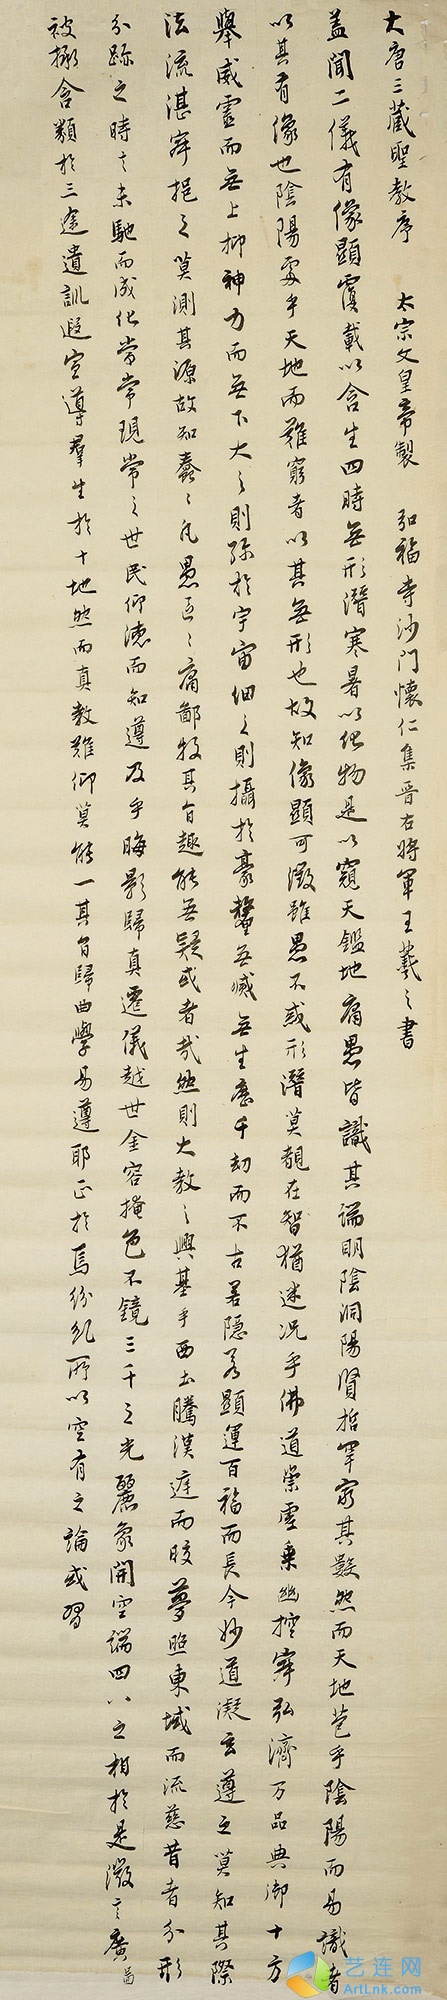 大唐三藏聖教序 太宗文皇帝製 弘福寺沙門懷仁集晉右將軍王羲之書
蓋聞二儀有像顯覆載以含生四時無形潛寒暑以化物是以窺天鑑地庸愚皆識其端明陰洞陽賢哲罕窮其數然而天地苞乎陰陽而易識者
以其有像也陰陽處乎天地而難窮者以其無形也故知像顯可徵雖愚不惑形潛莫覩在智猶迷況乎佛道崇虛乘幽控寂弘濟万品典御十方
舉威靈而無上抑神力而無下大之則彌於宇宙細之則攝於豪釐無滅無生歷千劫而不古若隱若顯運百福而長今妙道凝玄遵之莫知其際
法流湛寂挹之莫測其源故知蠢々凡愚區々庸鄙投其旨趣能無疑或者哉然則大教之興基乎西土騰漢庭而皎夢照東域而流慈昔者分形
分跡之時言未馳而成化當常現常之世民仰德而知遵及乎晦影歸真遷儀越世金容掩色不鏡三千之光麗象開空端四八之相於是微言廣
被拯含類於三途遺訓遐宣導群生於十地然而真教難仰莫能一其旨歸曲學易遵耶正於焉紛糺所以空有之論或習
艺连网
ArtLnk.COM